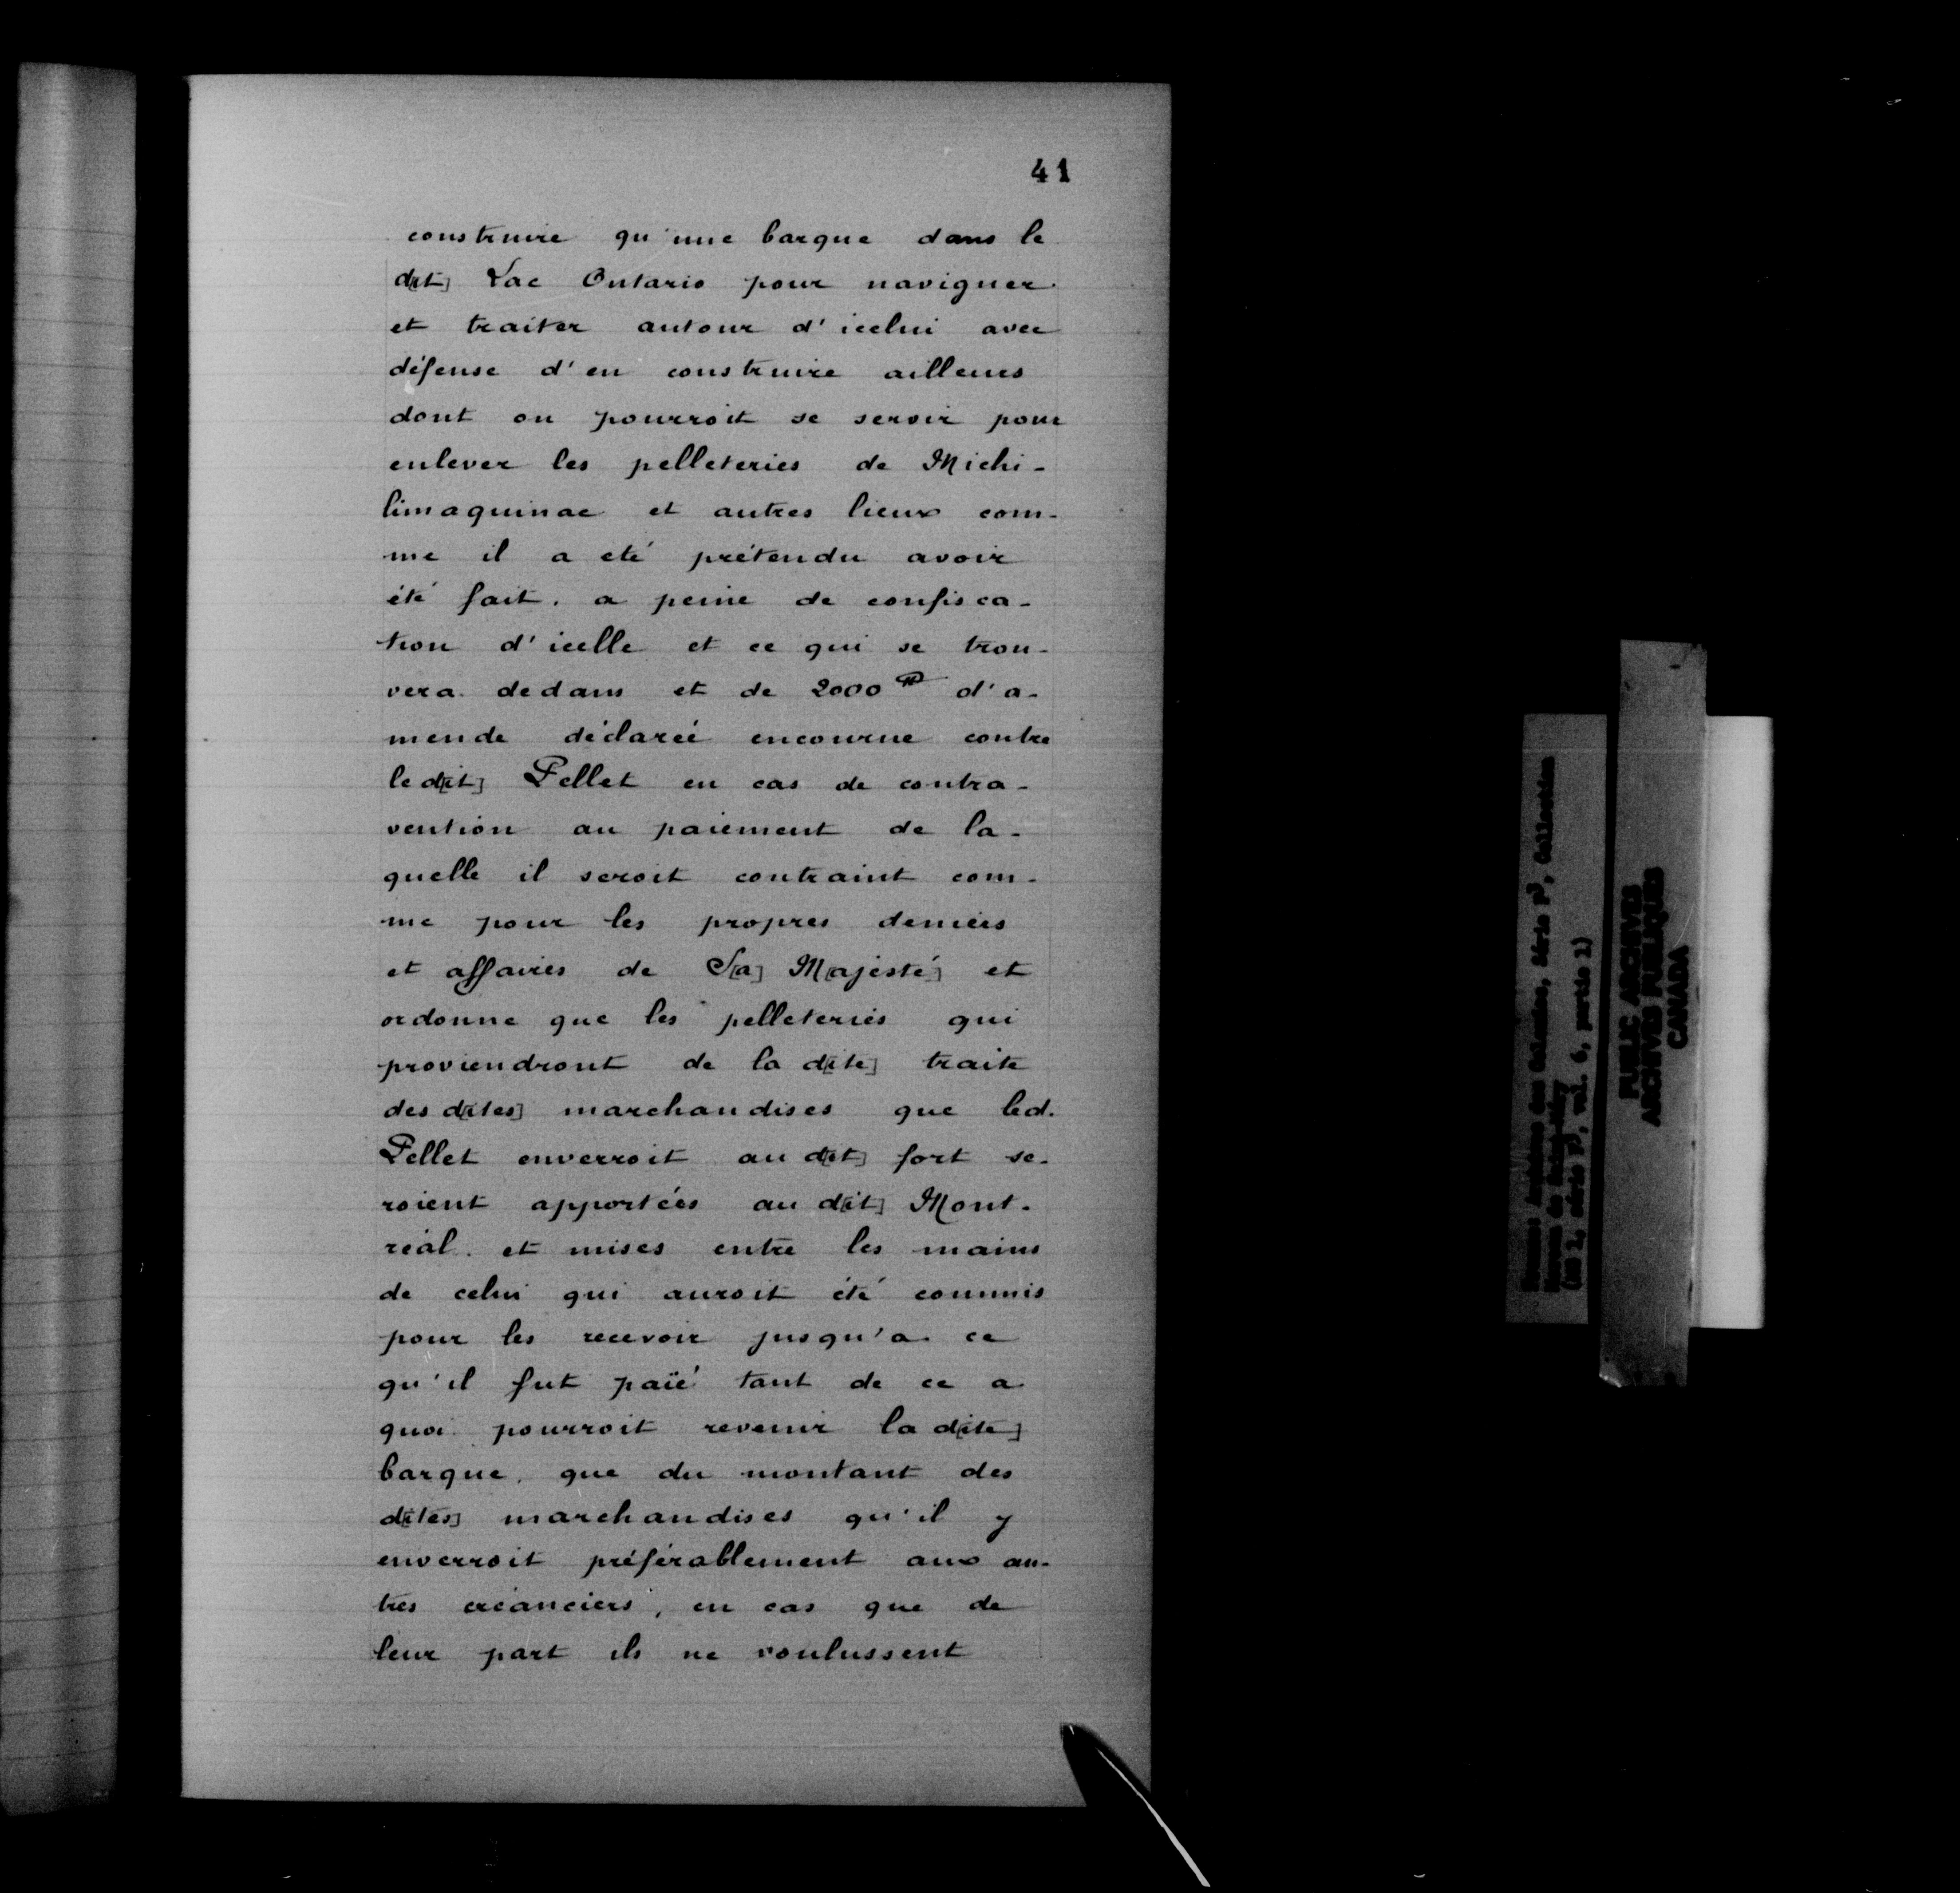 41
construire qu'une barque dans le
d[it] Lac Ontario pour naviguer
et traiter autour d'icelui avec
défense d'en construire ailleurs
dont on pourroit se servir pour
enlever les pelleteries de Michi-
limaquinac et autres lieux com-
me il a été prétendu avoir
été fait. a peine de confisca-
tion d'icelle et ce qui se trou-
vera dedans et de 2000 ₶ d'a-
mende déclarée encourue contre
le d[it] Pellet en cas de contra-
vention au paiement de la-
quelle il seroit contraint com-
me pour les propres deniers
et affaires de S[a] M[ajesté] et
ordonne que les pelleteries qui
proviendront de la d[ite] traite
des d[ites] marchandises que led.
Pellet enverroit au d[it] fort se-
roient apportées au d[it] Mont-
réal. et mises entre les mains
de celui qui auroit été commis
pour les recevoir jusqu'a ce
qu'il fut païé tant de ce a
quoi pourroit revenir la d[ite]
barque, que du montant des
d[ites] marchandises qu'il y
enverroit préférablement aux au-
tres créanciers, en cas que de
leur part ils ne voulussent
PUBLIC ARCHIVES
ARCHIVES PUBLIQUES
CANADA
des Colonies, Série F³, Collection
Moreau de Saint-Méry
(MG 1, série F³, vol. 6, partie 1)